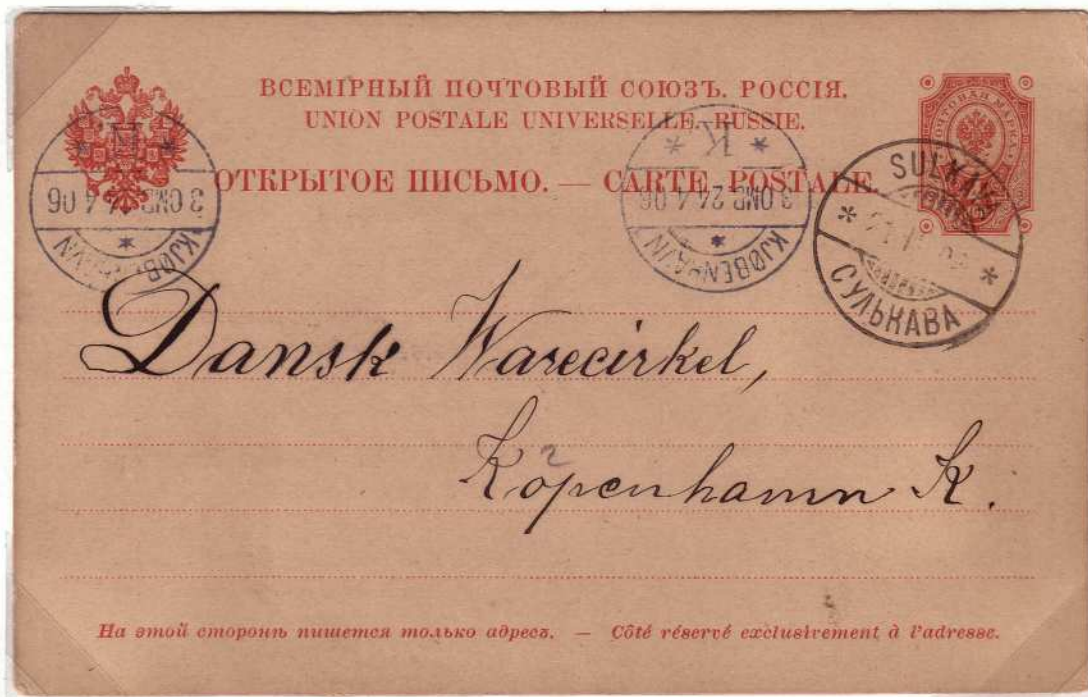 ВСЕМІРНЫЙ ПОЧТОВЫЙ СОЮЗЪ. РОССІЯ.
UNION POSTALE UNIVERSELLE. RUSSIE.
ОТКРЫТОЕ ПИСЬМО. — CARTE POSTALE.
ПОЧТОВАЯ МАРКА
K
3 OMB 24.4.06
KJØBENHAVN
K
3 OMB 24.4.06
KJØBENHAVN
SULKAVA
СУЛЬКАВА
Dansk Warecirkel,
Köpenhamn K.
2
На этой сторонѣ пишется только адресъ. — Côté réservé exclusivement à l'adresse.